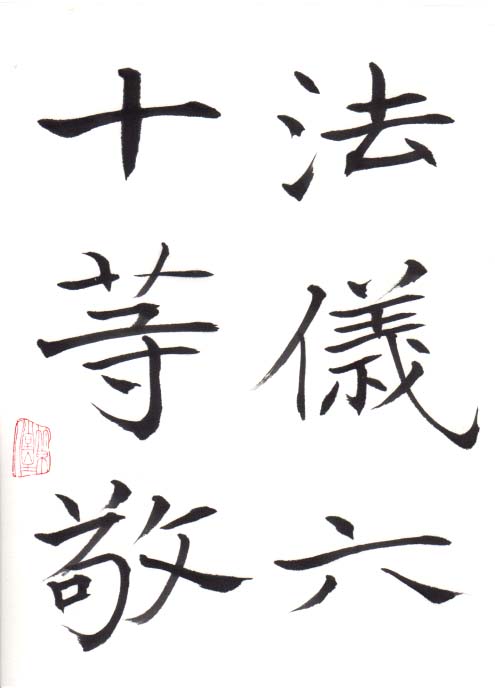 法儀六
十等敬